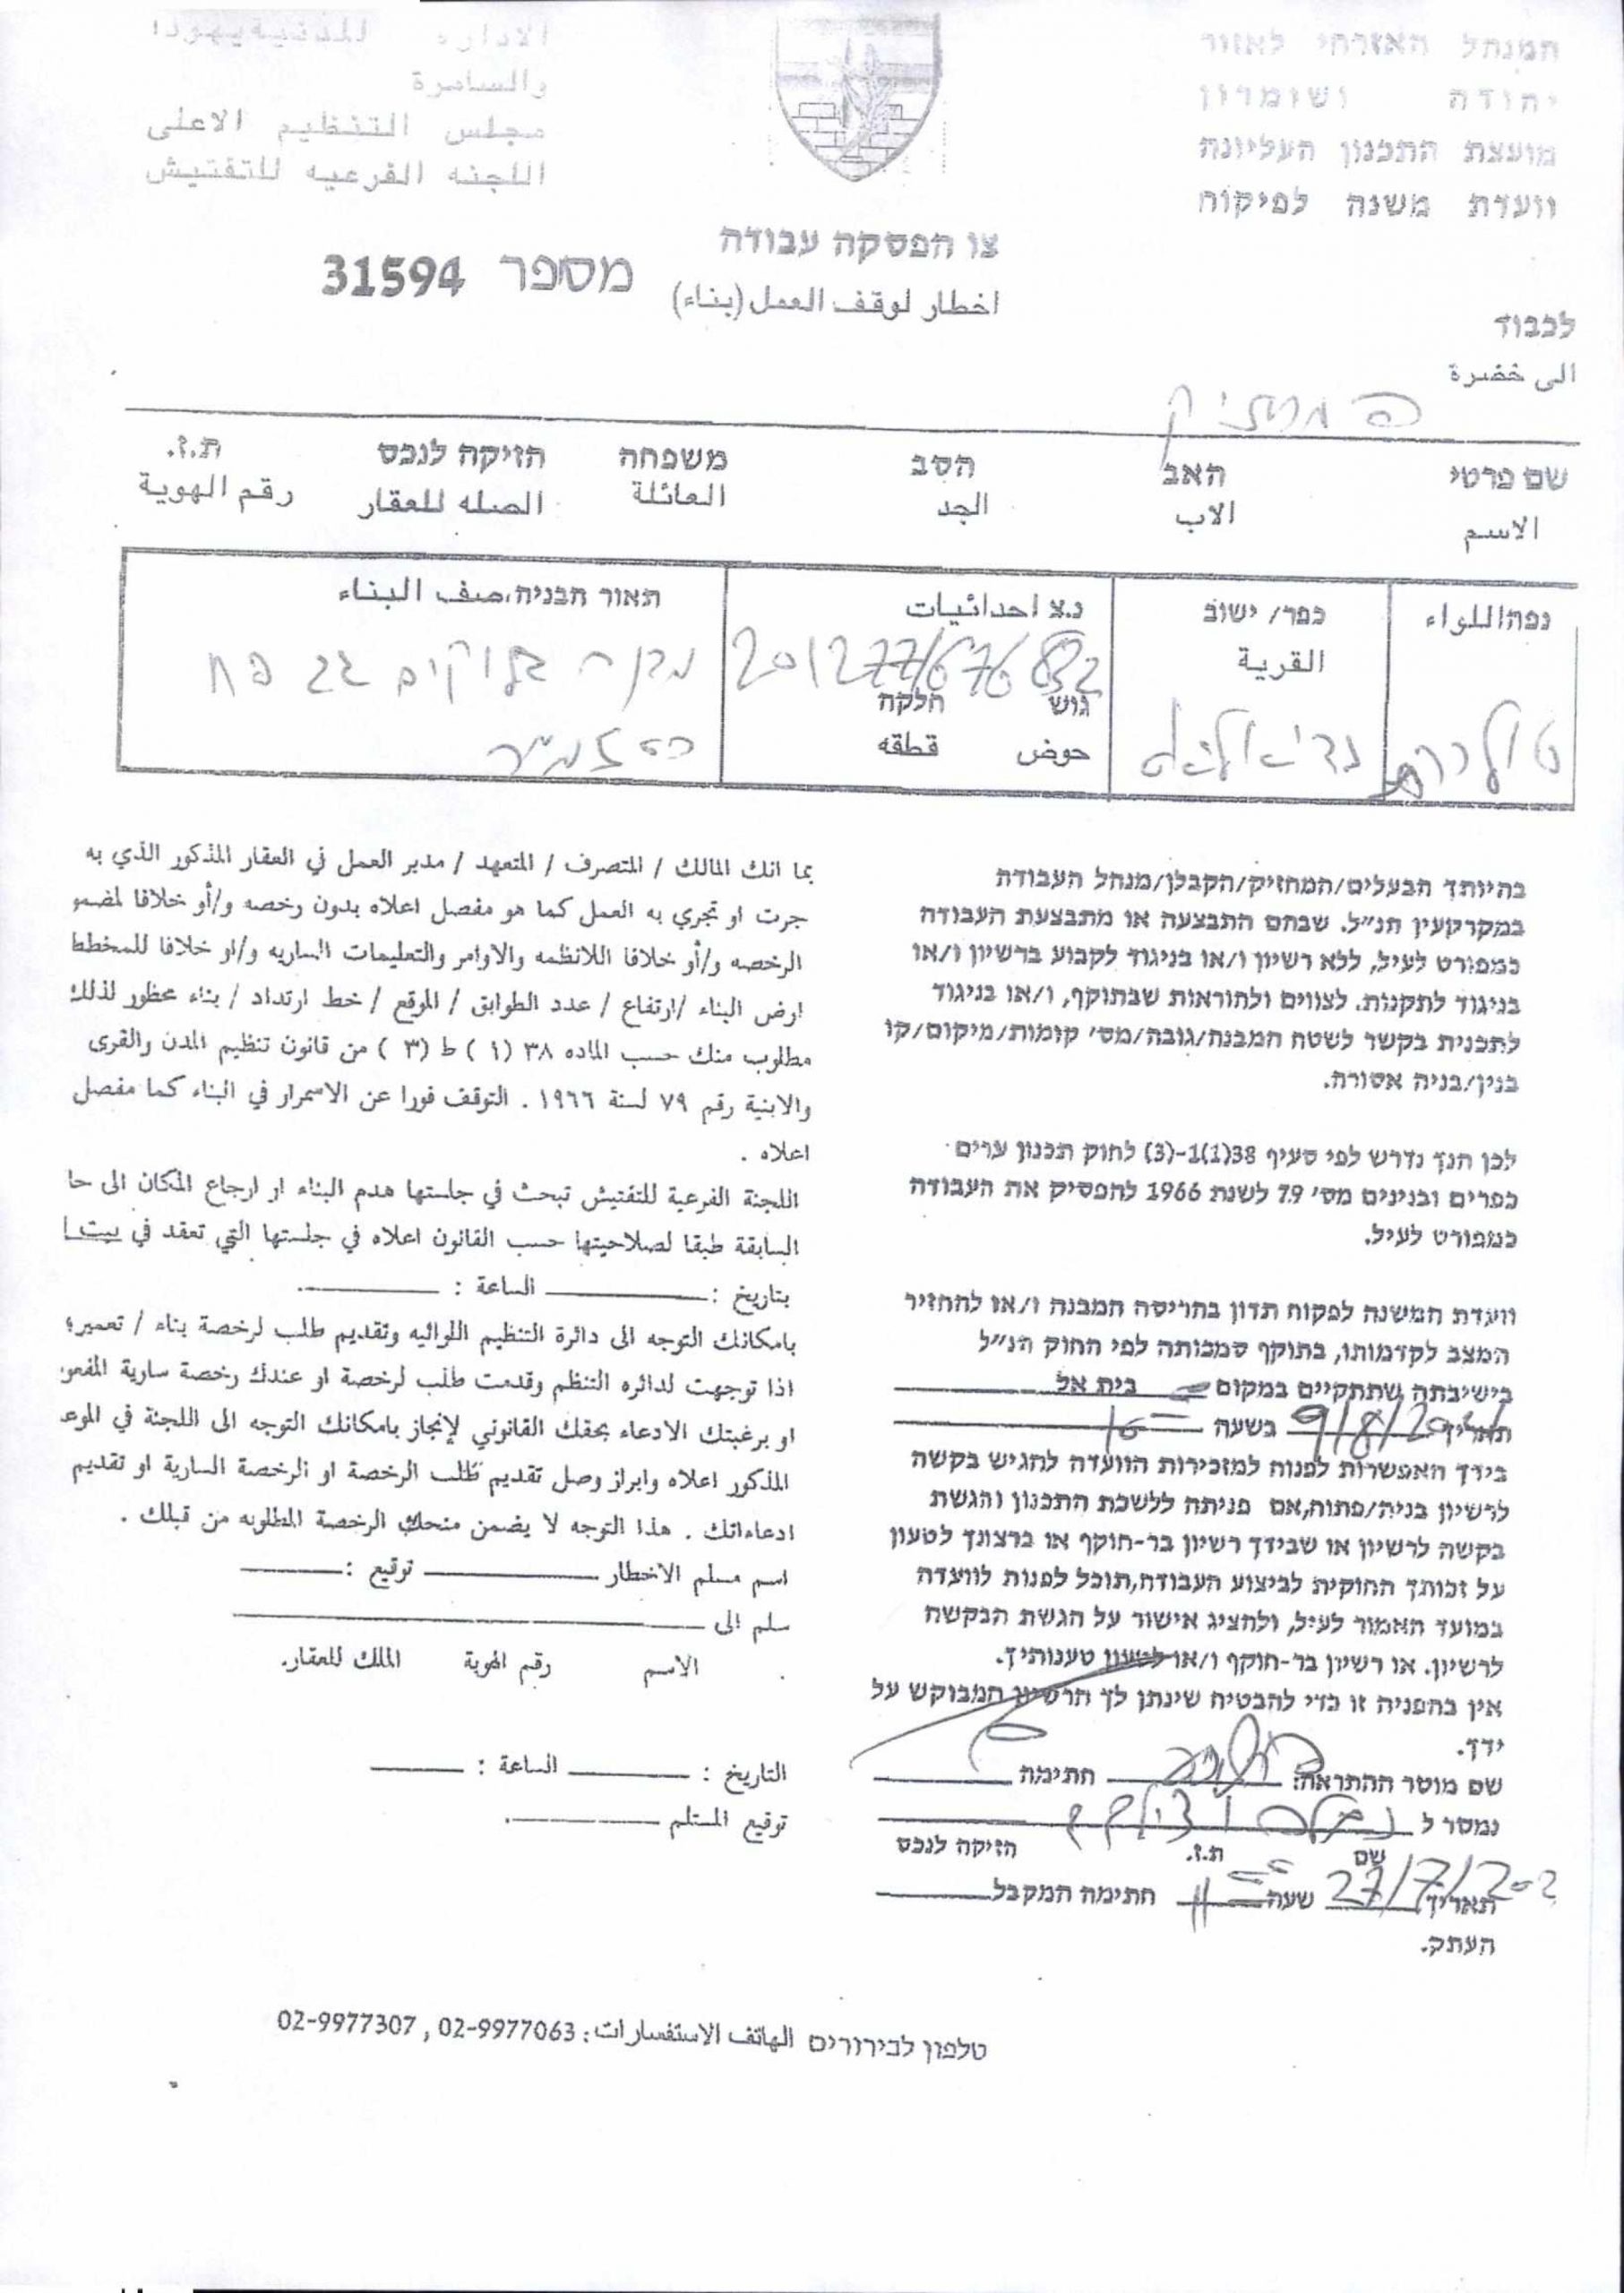 המנהל האזרחי לאזור
יהודה ושומרון
מועצת התכנון העליונה
וועדת משנה לפיקוח
الاداره المدنية يهودا
والسامرة
مجلس التنظيم الاعلى
اللجنه الفرعيه للتفتيش
צו הפסקה עבודה
اخطار لوقف العمل (بناء)
מספר 31594
לכבוד
الى خضرة
המחזיק
שם פרטי האב הסב משפחה הזיקה לנכס ת.ז.
الاسم الاب الجد العائلة الصله للعقار رقم الهوية
נפה اللواء
כפר/ ישוב
القرية
נ.צ احداثيات
201277/676852
גוש חלקה
حوض قطقه
תאור הבניה، صف البناء
מבנה בלוקים גג פח
בהיותך הבעלים/המחזיק/הקבלן/מנהל העבודה
במקרקעין הנ״ל. שבהם התבצעה או מתבצעת העבודה
כמפורט לעיל, ללא רשיון ו/או בניגוד לקבוע ברשיון ו/או
בניגוד לתקנות. לצווים ולהוראות שבתוקף, ו/או בניגוד
לתכנית בקשר לשטח המבנה/גובה/מס׳ קומות/מיקום/קו
בנין/בניה אסורה.
לכן הנך נדרש לפי סעיף 38(1)1-(3) לחוק תכנון ערים
כפרים ובנינים מס׳ 79 לשנת 1966 להפסיק את העבודה
כמפורט לעיל.
וועדת המשנה לפקוח תדון בהריסה המבנה ו/או להחזיר
המצב לקדמותו, בתוקף סמכותה לפי החוק הנ״ל
בישיבתה שתתקיים במקום בית אל
תאריך 9/8/2021 בשעה
בידך האפשרות לפנות למזכירות הוועדה להגיש בקשה
לרשיון בניה/פתוח,אם פניתה ללשכת התכנון והגשת
בקשה לרשיון או שבידך רשיון בר-תוקף או ברצונך לטעון
על זכותך החוקית לביצוע העבודה,תוכל לפנות לוועדה
במועד האמור לעיל, ולהציג אישור על הגשת הבקשה
לרשיון. או רשיון בר-תוקף ו/או לטעון טענותיך.
אין בהפניה זו כדי להבטיח שינתן לך הרשיון המבוקש על
ידך.
שם מוסר ההתראה: חתימה
נמסר ל
שם ת.ז. הזיקה לנכס
תאריך 27/7/202 שעה 11 חתימה המקבל
העתק.
بما انك المالك / المتصرف / المتعهد / مدير العمل في العقار المذكور الذي به
جرت او تجري به العمل كما هو مفصل اعلاه بدون رخصه و/أو خلافا لمضمو
الرخصه و/أو خلافا اللانظمه والاوامر والتعليمات الساريه و/او خلافا للمخطط
ارض البناء /ارتفاع / عدد الطوابق / الموقع / خط ارتداد / بناء محظور لذلك
مطلوب منك حسب الماده ٣٨ (١ ) ط (٣ ) من قانون تنظيم المدن والقرى
والابنية رقم ٧٩ لسنة ١٩٦٦ . التوقف فورا عن الاسمرار في البناء كما مفصل
اعلاه .
اللجنة الفرعية للتفتيش تبحث في جلستها هدم البناء ار ارجاع المكان الى حا
السابقة طبقا لصلاحيتها حسب القانون اعلاه في جلستها التي تعقد في بيت ا
بتاريخ : الساعة :
بامكانك التوجه الى دائرة التنظيم اللوائيه وتقديم طلب لرخصة بناء / تعمير؛
اذا توجهت لدائره التنظم وقدمت طلب لرخصة او عندك رخصة سارية المفعو
او برغبتك الادعاء بحقك القانوني لإنجاز بامكانك التوجه الى اللجنة في الموء
المذكور اعلاه وابراز وصل تقديم طلب الرخصة او الرخصة السارية او تقديم
ادعاءاتك . هذا التوجه لا يضمن منحك الرخصة المطلوبه من قبلك .
اسم مسلم الاخطار توقيع :
سلم الى
الاسم رقم الهوية الملك للعقار.
التاريخ : الساعة :
توقيع المستلم
טלפון לבירורים الهاتف الاستفسارات: 02-9977063 , 02-9977307